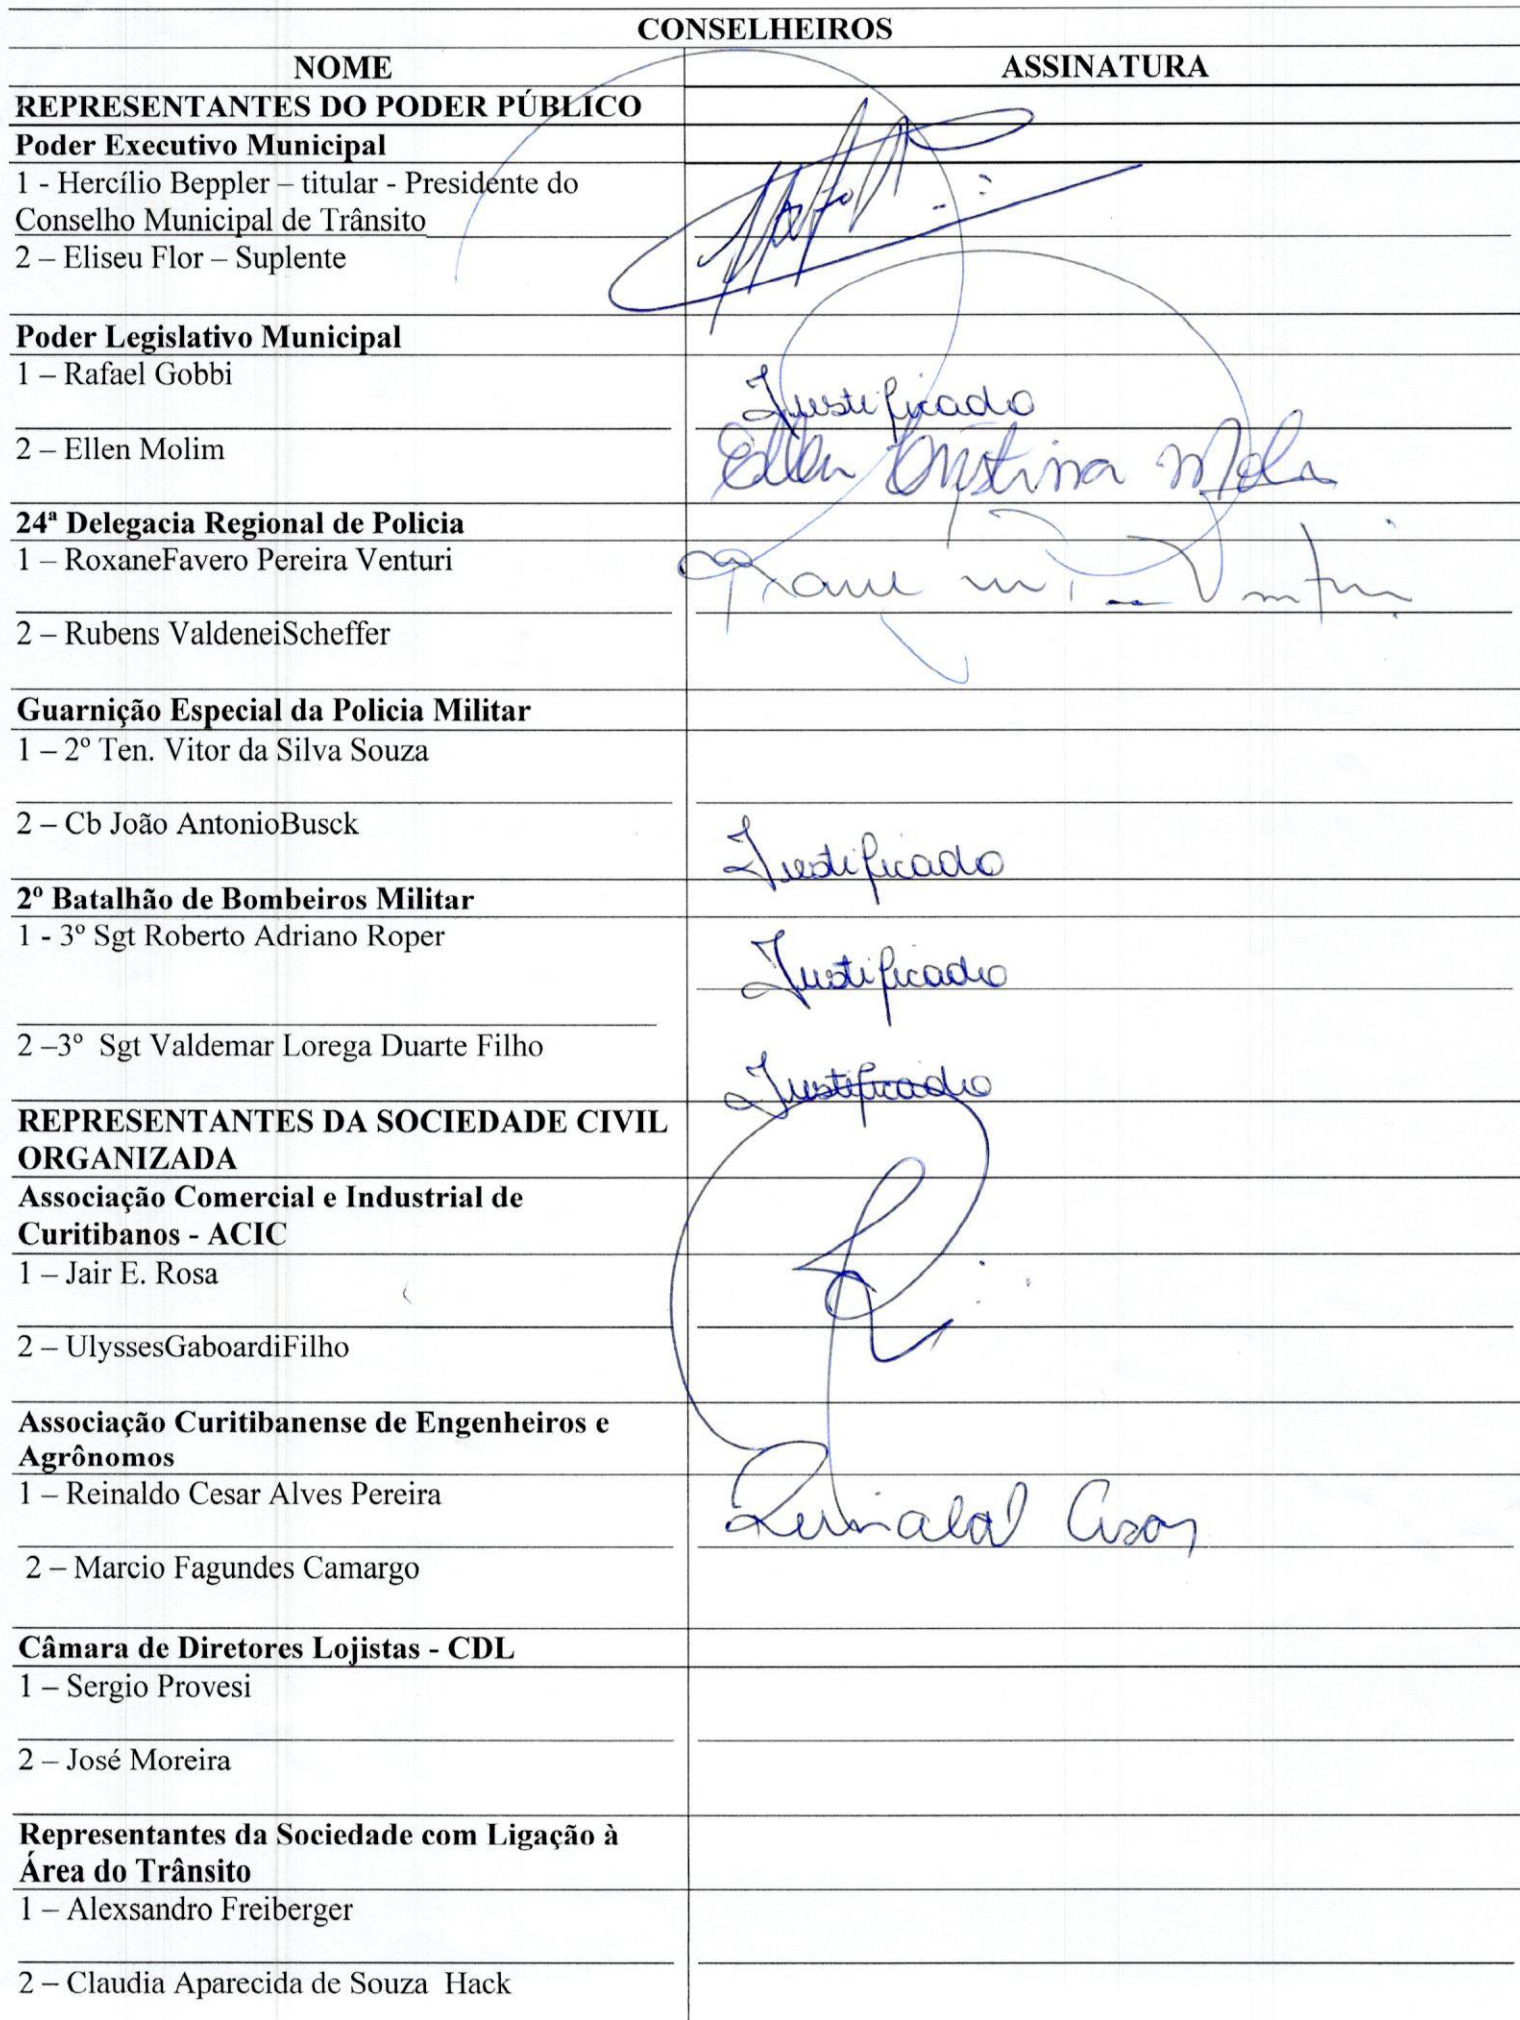 CONSELHEIROS
NOME ASSINATURA
REPRESENTANTES DO PODER PÚBLICO
Poder Executivo Municipal
1 - Hercílio Beppler – titular - Presidente do
Conselho Municipal de Trânsito
2 – Eliseu Flor – Suplente
Poder Legislativo Municipal
1 – Rafael Gobbi
Justificado
2 – Ellen Molim
Ellen Cristina
24ª Delegacia Regional de Policia
1 – RoxaneFavero Pereira Venturi
2 – Rubens ValdeneiScheffer
Guarnição Especial da Policia Militar
1 – 2º Ten. Vitor da Silva Souza
2 – Cb João AntonioBusck
Justificado
2º Batalhão de Bombeiros Militar
1 - 3º Sgt Roberto Adriano Roper
Justificado
2 –3º Sgt Valdemar Lorega Duarte Filho
Justificado
REPRESENTANTES DA SOCIEDADE CIVIL
ORGANIZADA
Associação Comercial e Industrial de
Curitibanos - ACIC
1 – Jair E. Rosa
2 – UlyssesGaboardiFilho
Associação Curitibanense de Engenheiros e
Agrônomos
1 – Reinaldo Cesar Alves Pereira
2 – Marcio Fagundes Camargo
Câmara de Diretores Lojistas - CDL
1 – Sergio Provesi
2 – José Moreira
Representantes da Sociedade com Ligação à
Área do Trânsito
1 – Alexsandro Freiberger
2 – Claudia Aparecida de Souza Hack